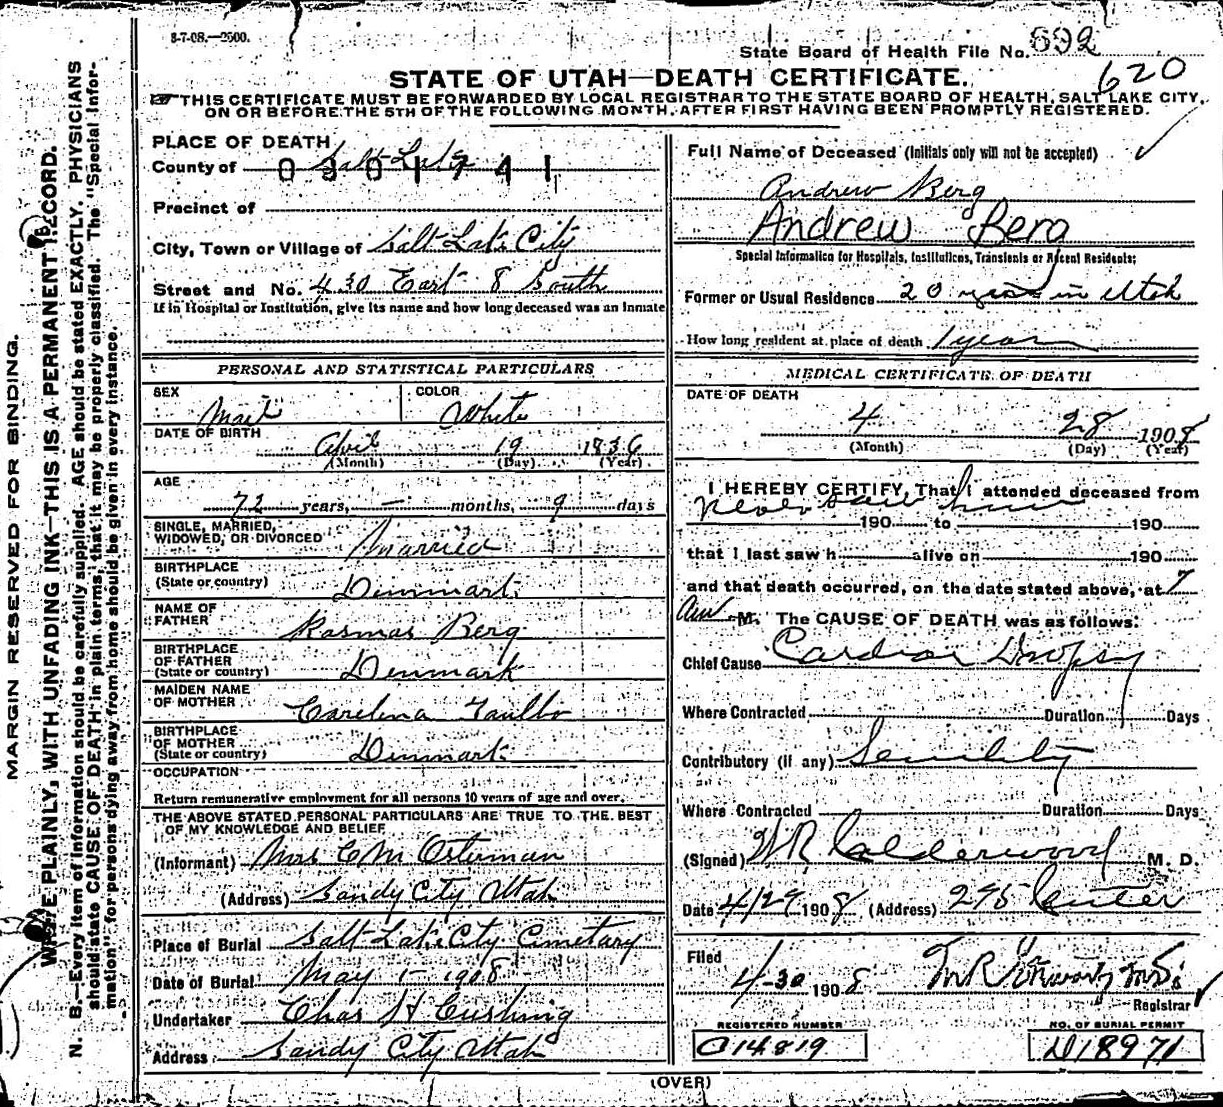 8-7-08.—2500.
State Board of Health File No. 692
620
STATE OF UTAH—DEATH CERTIFICATE.
THIS CERTIFICATE MUST BE FORWARDED BY LOCAL REGISTRAR TO THE STATE BOARD OF HEALTH, SALT LAKE CITY,
ON OR BEFORE THE 5TH OF THE FOLLOWING MONTH, AFTER FIRST HAVING BEEN PROMPTLY REGISTERED.
MARGIN RESERVED FOR BINDING.
WRITE PLAINLY, WITH UNFADING INK—THIS IS A PERMANENT RECORD.
N. B.—Every item of information should be carefully supplied. AGE should be stated EXACTLY. PHYSICIANS
should state CAUSE OF DEATH in plain terms, that it may be properly classified. The "Special Infor-
mation" for persons dying away from home should be given in every instance.
PLACE OF DEATH
County of Salt Lake
0301741
Precinct of
City, Town or Village of Salt Lake City
Street and No. 430 East 8 South
If in Hospital or Institution, give its name and how long deceased was an inmate
PERSONAL AND STATISTICAL PARTICULARS
SEX Male
COLOR White
DATE OF BIRTH April 19 1836
(Month) (Day) (Year)
AGE
72 years, — months, 9 days
SINGLE, MARRIED,
WIDOWED, OR DIVORCED Married
BIRTHPLACE
(State or country) Denmark
NAME OF
FATHER Rasmas Berg
BIRTHPLACE
OF FATHER
(State or country) Denmark
MAIDEN NAME
OF MOTHER Carelena
BIRTHPLACE
OF MOTHER
(State or country) Denmark
OCCUPATION
Return remunerative employment for all persons 10 years of age and over.
THE ABOVE STATED PERSONAL PARTICULARS ARE TRUE TO THE BEST
OF MY KNOWLEDGE AND BELIEF
(Informant) Mrs C M Osterman
(Address) Sandy City Utah
Place of Burial Salt Lake City Cemetary
Date of Burial May 1- 1908
Undertaker Chas H Cushing
Address Sandy City Utah
Full Name of Deceased (Initials only will not be accepted)
Andrew Berg
Andrew Berg
Special Information for Hospitals, Institutions, Transients or Recent Residents;
Former or Usual Residence 20 years in Utah
How long resident at place of death 1 year
MEDICAL CERTIFICATE OF DEATH
DATE OF DEATH
4 28 1908
(Month) (Day) (Year)
I HEREBY CERTIFY, That I attended deceased from
Never saw him
190 to 190
that I last saw h alive on 190
and that death occurred, on the date stated above, at 7
AM M. The CAUSE OF DEATH was as follows:
Chief Cause Cardiac Dropsy
Where Contracted Duration Days
Contributory (if any) Senility
Where Contracted Duration Days
(Signed) W R Calderwood M. D.
Date 4/29 1908 (Address) 295 Center
Filed
4-30 1908
Registrar
REGISTERED NUMBER
C14819
NO. OF BURIAL PERMIT
D18971
(OVER)